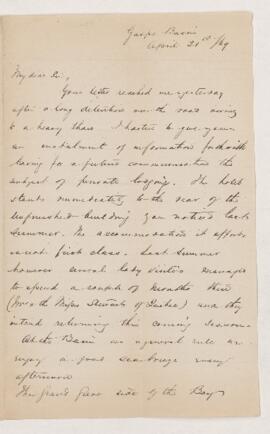 Gaspe Basin
April 21st /69
My dear Sir,
Your letter reached me yesterday
after a long detention on the road owing
to a heavy thaw. I hasten to give you
an instalment of information forthwith
leaving for a future communication the
subject of private lodging. The hotel
stands immediately to the rear of the
unfinished building you noticed last
summer. The accommodation it affords
is not first class. Last summer
however several lady visitors managed
to spend a couple of months there
(Mrs & the Misses Stewarts of Quebec) and they
intend returning this coming season.
At the Basin as a general rule we
enjoy a good sea breeze every
afternoon
The Grand Greve side of the Bay